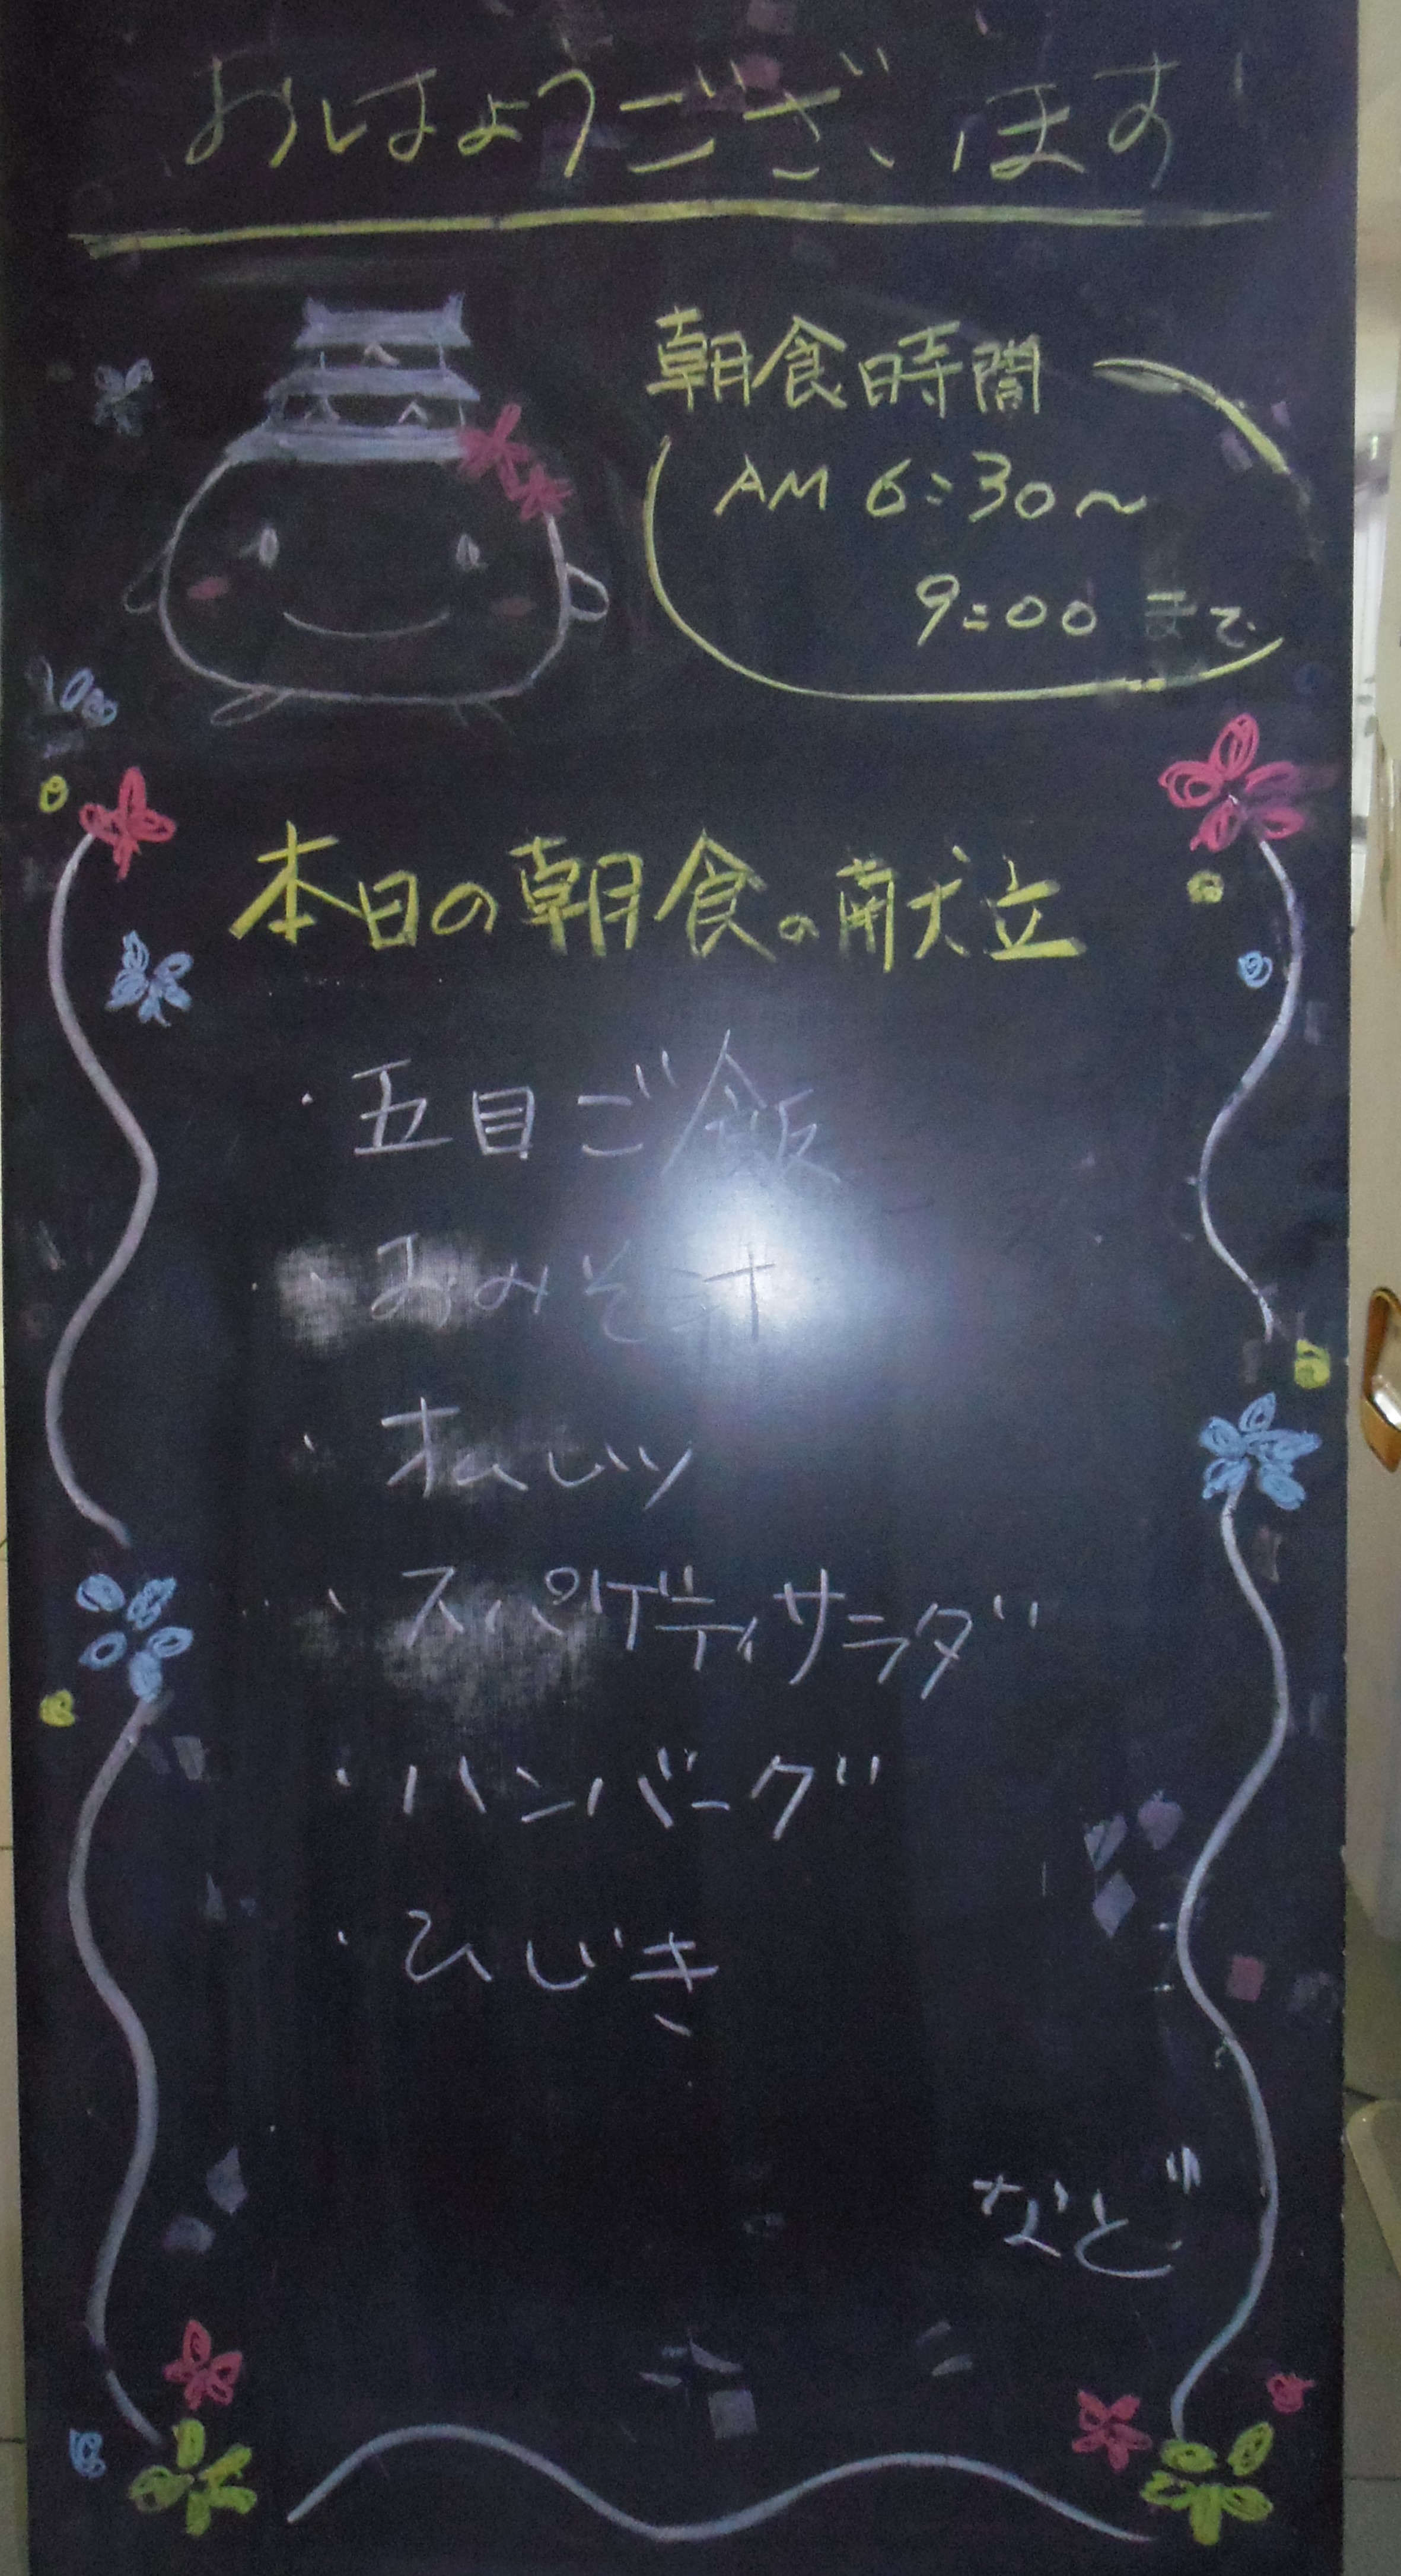 おはようございます
朝食時間
AM 6:30～
9:00 まで
本日の朝食の献立
・五目ご飯
・おみそ汁
・オムレツ
・スパゲティサラダ
・ハンバーグ
・ひじき
など